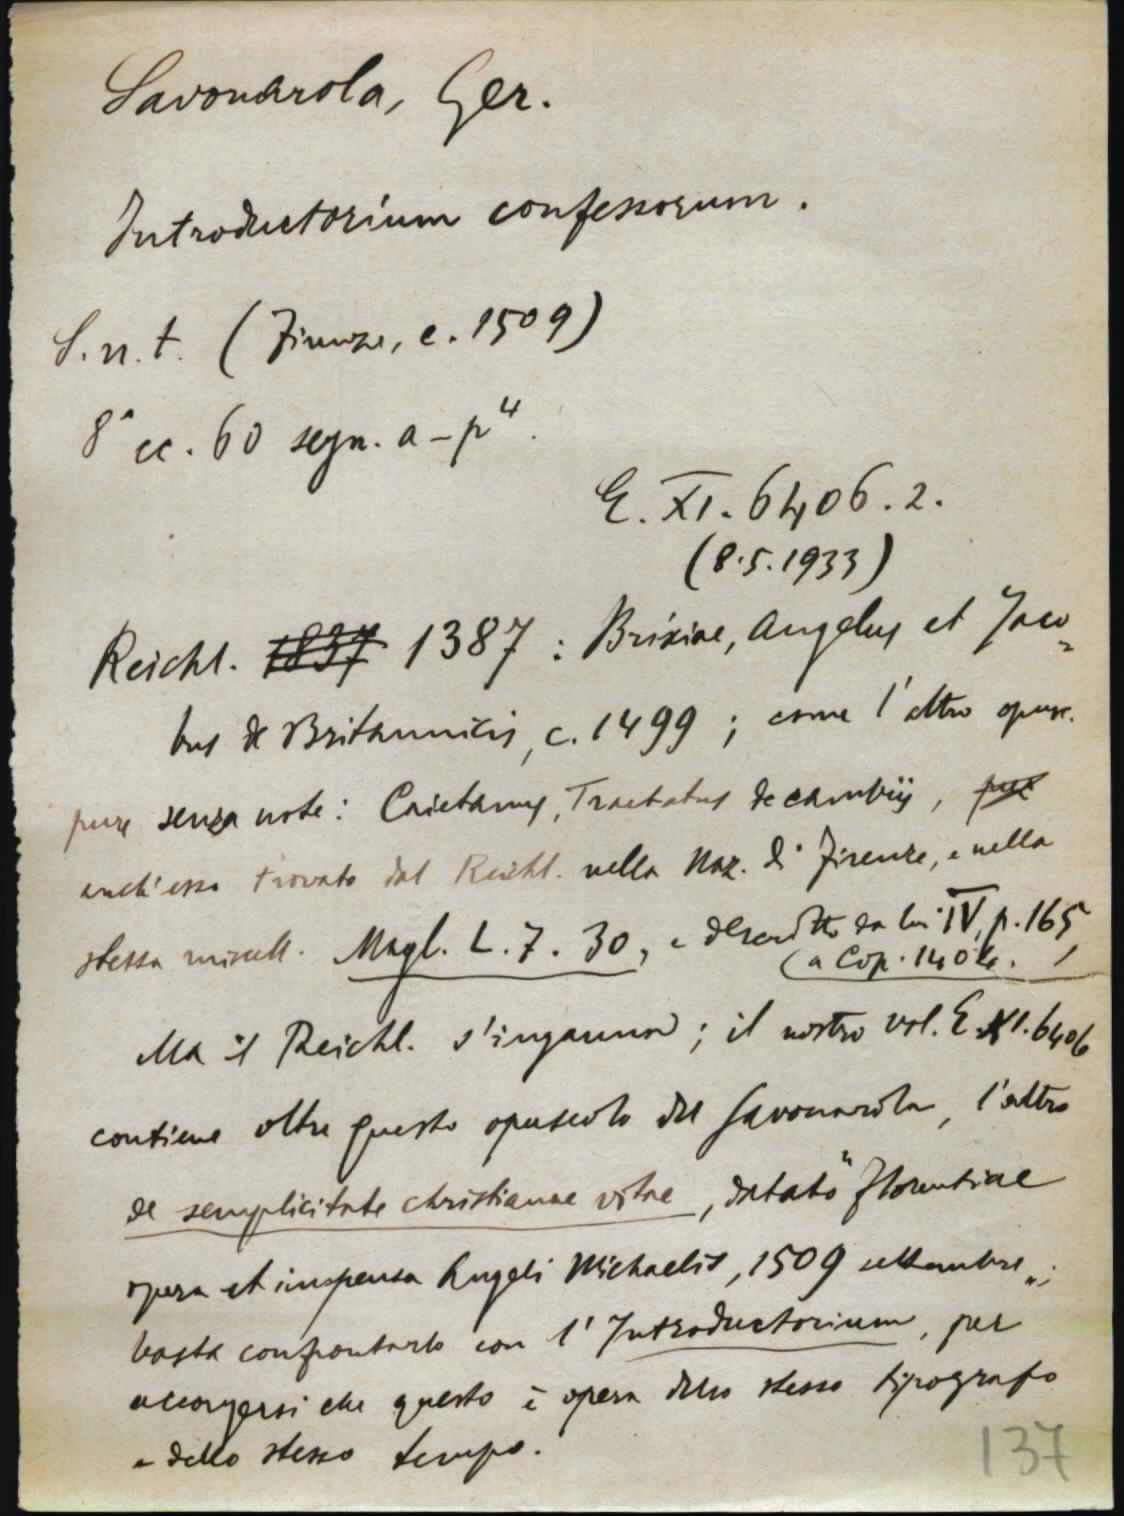 Savonarola, Ger.
Introductorium confessorum.
S.n.t. (Firenze, c. 1509)
8° cc. 60 segn. a-p⁴.
E. XI. 6406. 2.
(8.5.1933)
Reichl. 1837 1387 : Brixiae, Angelus et Jaco-
bus de Britannicis, c. 1499 ; come l'altro opusc.
pure senza note: Caietanus, Tractatus de cambiis, pure
anch'esso trovato dal Reichl. nella Naz. di Firenze, e nella
stessa miscell. Magl. L. 7. 30, e descritto da lui IV, p. 165,
(a Cop. 1404.
Ma il Reichl. s'inganna ; il nostro vol. E. XI. 6406
contiene oltre questo opuscolo del Savonarola, l'altro
de semplicitate christianae vitae, datato "Florentiae
opera et impensa Angeli Michaelis, 1509 settembre";
basta confrontarlo con l'Introductorium, per
accorgersi che questo è opera dello stesso tipografo
e dello stesso tempo.
137